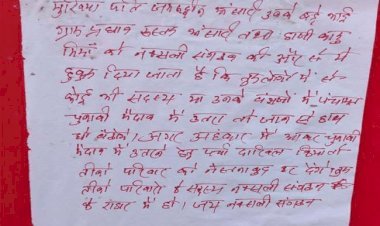 मुखिया पति जमरुद्दीन अंसारी उनके बड़े भाई
ग्राम प्रधान रुस्तम अंसारी तथा हाजी कादु
मियाँ को नक्सली संगठन की ओर से
हुक्म दिया जाता है कि तुमलोगों में से
कोई भी सदस्य या उनके वंशजों में पंचायत
चुनावी मैदान में उतरा तो जान से हाथ
धो बैठोगे। अगर अहंकार में आकर चुनावी
मैदान में उतरने हेतु पर्चा दाखिल किया तो
तीनों परिवार को नेस्तनाबुद कर देंगे। तुम
तीनों परिवारों के सदस्य नक्सली संगठन
के राडार में हो। जय नक्सली संगठन